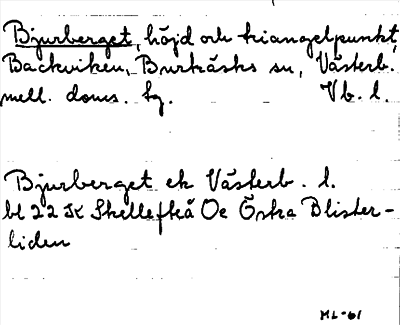 Bjurberget, höjd och triangelpunkt,
Backviken, Burträsks sn, Västerb.
mell. doms. fg. Vb. l.
Bjurberget ek Västerb. l.
bl 22 K Skellefteå Oe Östra Blister-
liden
ML-61